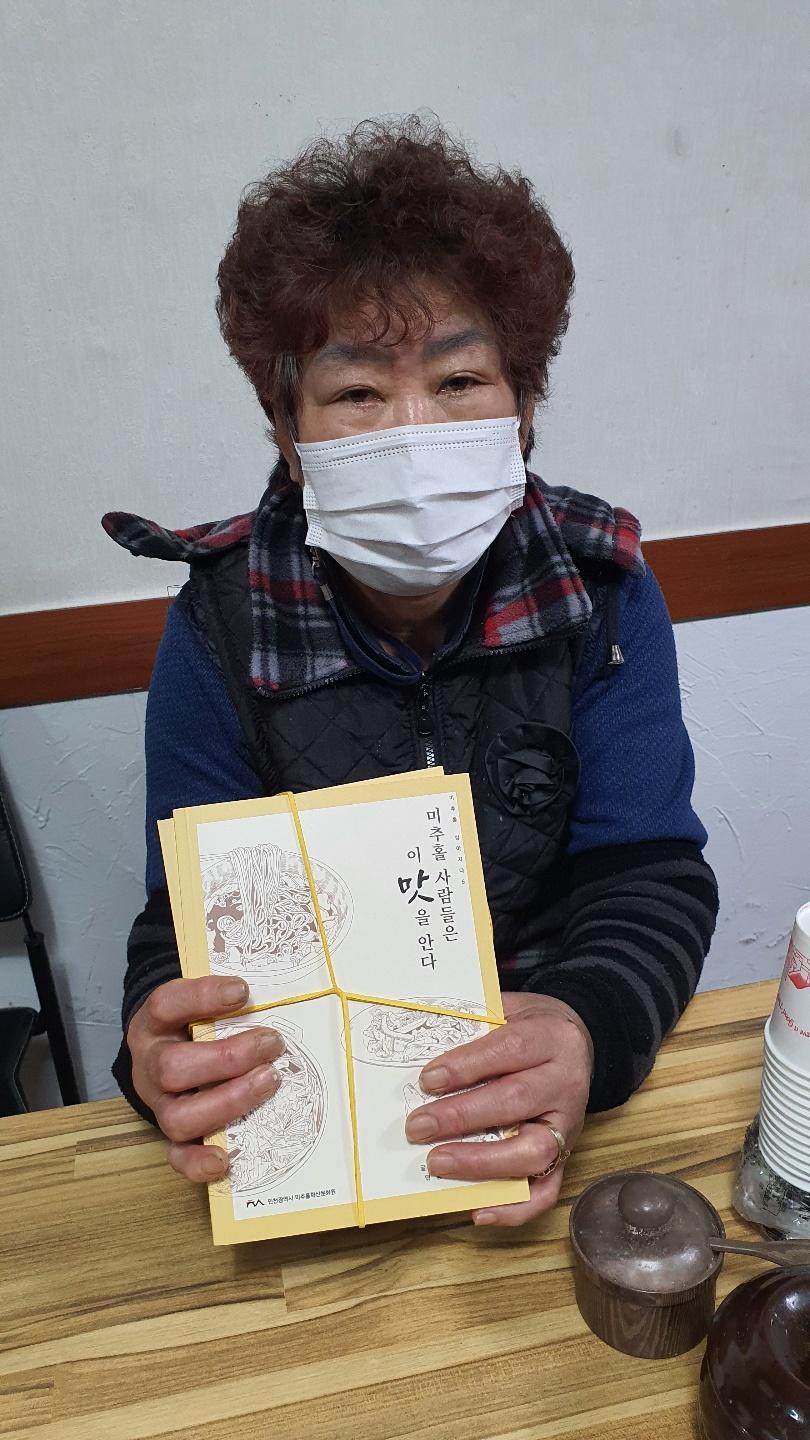 미추홀 살아지다 5
미추홀 사람들은
이 맛을 안다
인천광역시 미추홀학산문화원